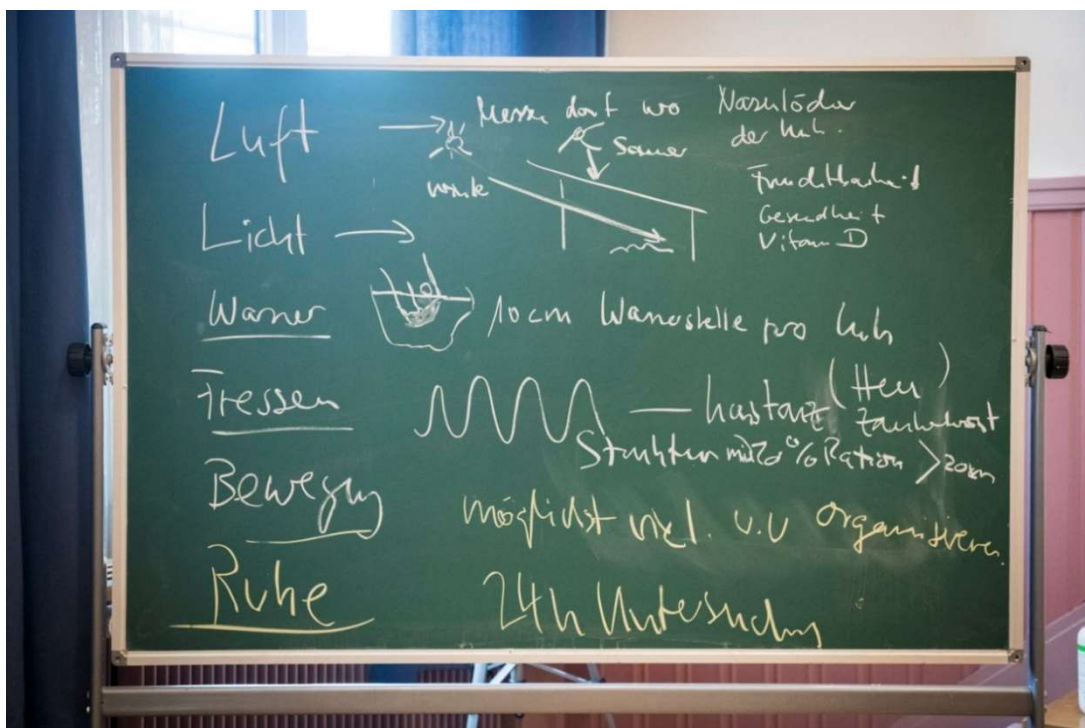 Luft → Messen dort wo Nasenlöcher
der Kuh.
Sommer
Fruchtbarkeit
Gesundheit
Vitamin D
Licht →
Wasser 10 cm Wandstelle pro Kuh
Fressen — konstanz (Heu)
Struktur % Ration > 20cm
Bewegung möglichst viel. u.U organisieren
Ruhe 24h Untersuchung